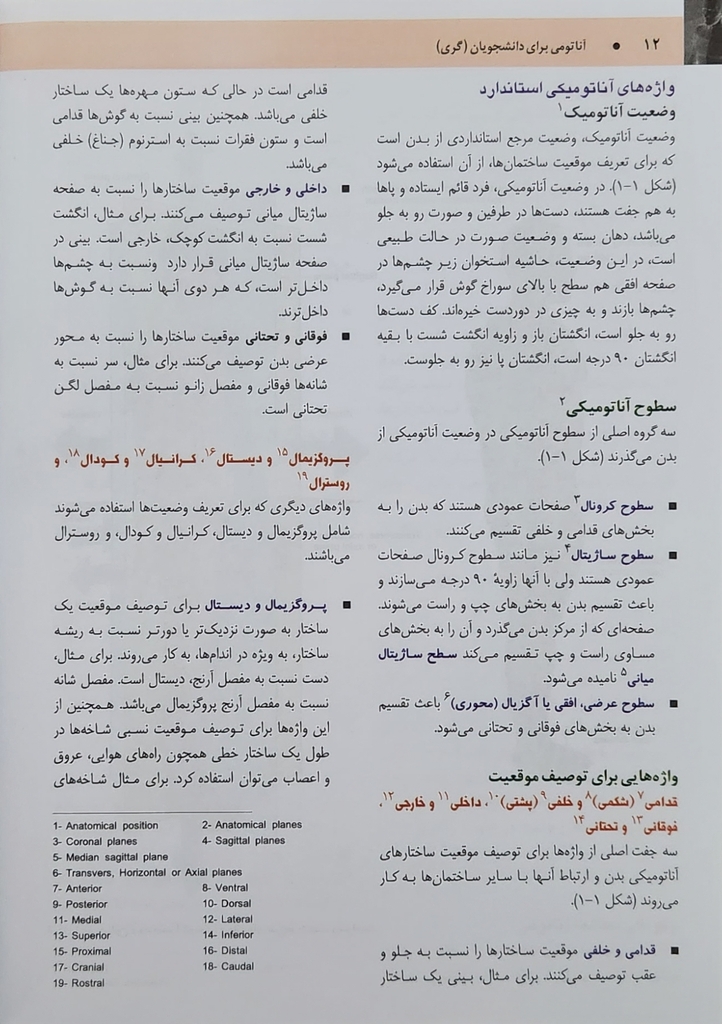 ۱۲ • آناتومی برای دانشجویان (گری)
واژه‌های آناتومیکی استاندارد
وضعیت آناتومیک۱
وضعیت آناتومیک، وضعیت مرجع استانداردی از بدن است
که برای تعریف موقعیت ساختمان‌ها، از آن استفاده می‌شود
(شکل ۱-۱). در وضعیت آناتومیکی، فرد قائم ایستاده و پاها
به هم جفت هستند، دست‌ها در طرفین و صورت رو به جلو
می‌باشد، دهان بسته و وضعیت صورت در حالت طبیعی
است، در این وضعیت، حاشیه استخوان زیر چشم‌ها در
صفحه افقی هم سطح با بالای سوراخ گوش قرار می‌گیرد،
چشم‌ها بازند و به چیزی در دوردست خیره‌اند. کف دست‌ها
رو به جلو است، انگشتان باز و زاویه انگشت شست با بقیه
انگشتان ۹۰ درجه است، انگشتان پا نیز رو به جلوست.
سطوح آناتومیکی۲
سه گروه اصلی از سطوح آناتومیکی در وضعیت آناتومیکی از
بدن می‌گذرند (شکل ۱-۱).
■ سطوح کرونال۳ صفحات عمودی هستند که بدن را به
بخش‌های قدامی و خلفی تقسیم می‌کنند.
■ سطوح ساژیتال۴ نیز مانند سطوح کرونال صفحات
عمودی هستند ولی با آنها زاویهٔ ۹۰ درجه می‌سازند و
باعث تقسیم بدن به بخش‌های چپ و راست می‌شوند.
صفحه‌ای که از مرکز بدن می‌گذرد و آن را به بخش‌های
مساوی راست و چپ تقسیم می‌کند سطح ساژیتال
میانی۵ نامیده می‌شود.
■ سطوح عرضی، افقی یا آگزیال (محوری)۶ باعث تقسیم
بدن به بخش‌های فوقانی و تحتانی می‌شود.
واژه‌هایی برای توصیف موقعیت
قدامی۷ (شکمی)۸ و خلفی۹ (پشتی)۱۰، داخلی۱۱ و خارجی۱۲،
فوقانی۱۳ و تحتانی۱۴
سه جفت اصلی از واژه‌ها برای توصیف موقعیت ساختارهای
آناتومیکی بدن و ارتباط آنها با سایر ساختمان‌ها به کار
می‌روند (شکل ۱-۱).
■ قدامی و خلفی موقعیت ساختارها را نسبت به جلو و
عقب توصیف می‌کنند. برای مثال، بینی یک ساختار
قدامی است در حالی که ستون مهره‌ها یک ساختار
خلفی می‌باشد. همچنین بینی نسبت به گوش‌ها قدامی
است و ستون فقرات نسبت به استرنوم (جناغ) خلفی
می‌باشد.
■ داخلی و خارجی موقعیت ساختارها را نسبت به صفحه
ساژیتال میانی توصیف می‌کنند. برای مثال، انگشت
شست نسبت به انگشت کوچک، خارجی است. بینی در
صفحه ساژیتال میانی قرار دارد ونسبت به چشم‌ها
داخل‌تر است، که هر دوی آنها نسبت به گوش‌ها
داخل‌ترند.
■ فوقانی و تحتانی موقعیت ساختارها را نسبت به محور
عرضی بدن توصیف می‌کنند. برای مثال، سر نسبت به
شانه‌ها فوقانی و مفصل زانو نسبت به مفصل لگن
تحتانی است.
پروگزیمال۱۵ و دیستال۱۶، کرانیال۱۷ و کودال۱۸، و
روسترال۱۹
واژه‌های دیگری که برای تعریف وضعیت‌ها استفاده می‌شوند
شامل پروگزیمال و دیستال، کرانیال و کودال، و روسترال
می‌باشند.
■ پروگزیمال و دیستال برای توصیف موقعیت یک
ساختار به صورت نزدیک‌تر یا دورتر نسبت به ریشه
ساختار، به ویژه در اندام‌ها، به کار می‌روند. برای مثال،
دست نسبت به مفصل آرنج، دیستال است. مفصل شانه
نسبت به مفصل آرنج پروگزیمال می‌باشد. همچنین از
این واژه‌ها برای توصیف موقعیت نسبی شاخه‌ها در
طول یک ساختار خطی همچون راه‌های هوایی، عروق
و اعصاب می‌توان استفاده کرد. برای مثال شاخه‌های
1- Anatomical position 2- Anatomical planes
3- Coronal planes 4- Sagittal planes
5- Median sagittal plane
6- Transvers, Horizontal or Axial planes
7- Anterior 8- Ventral
9- Posterior 10- Dorsal
11- Medial 12- Lateral
13- Superior 14- Inferior
15- Proximal 16- Distal
17- Cranial 18- Caudal
19- Rostral